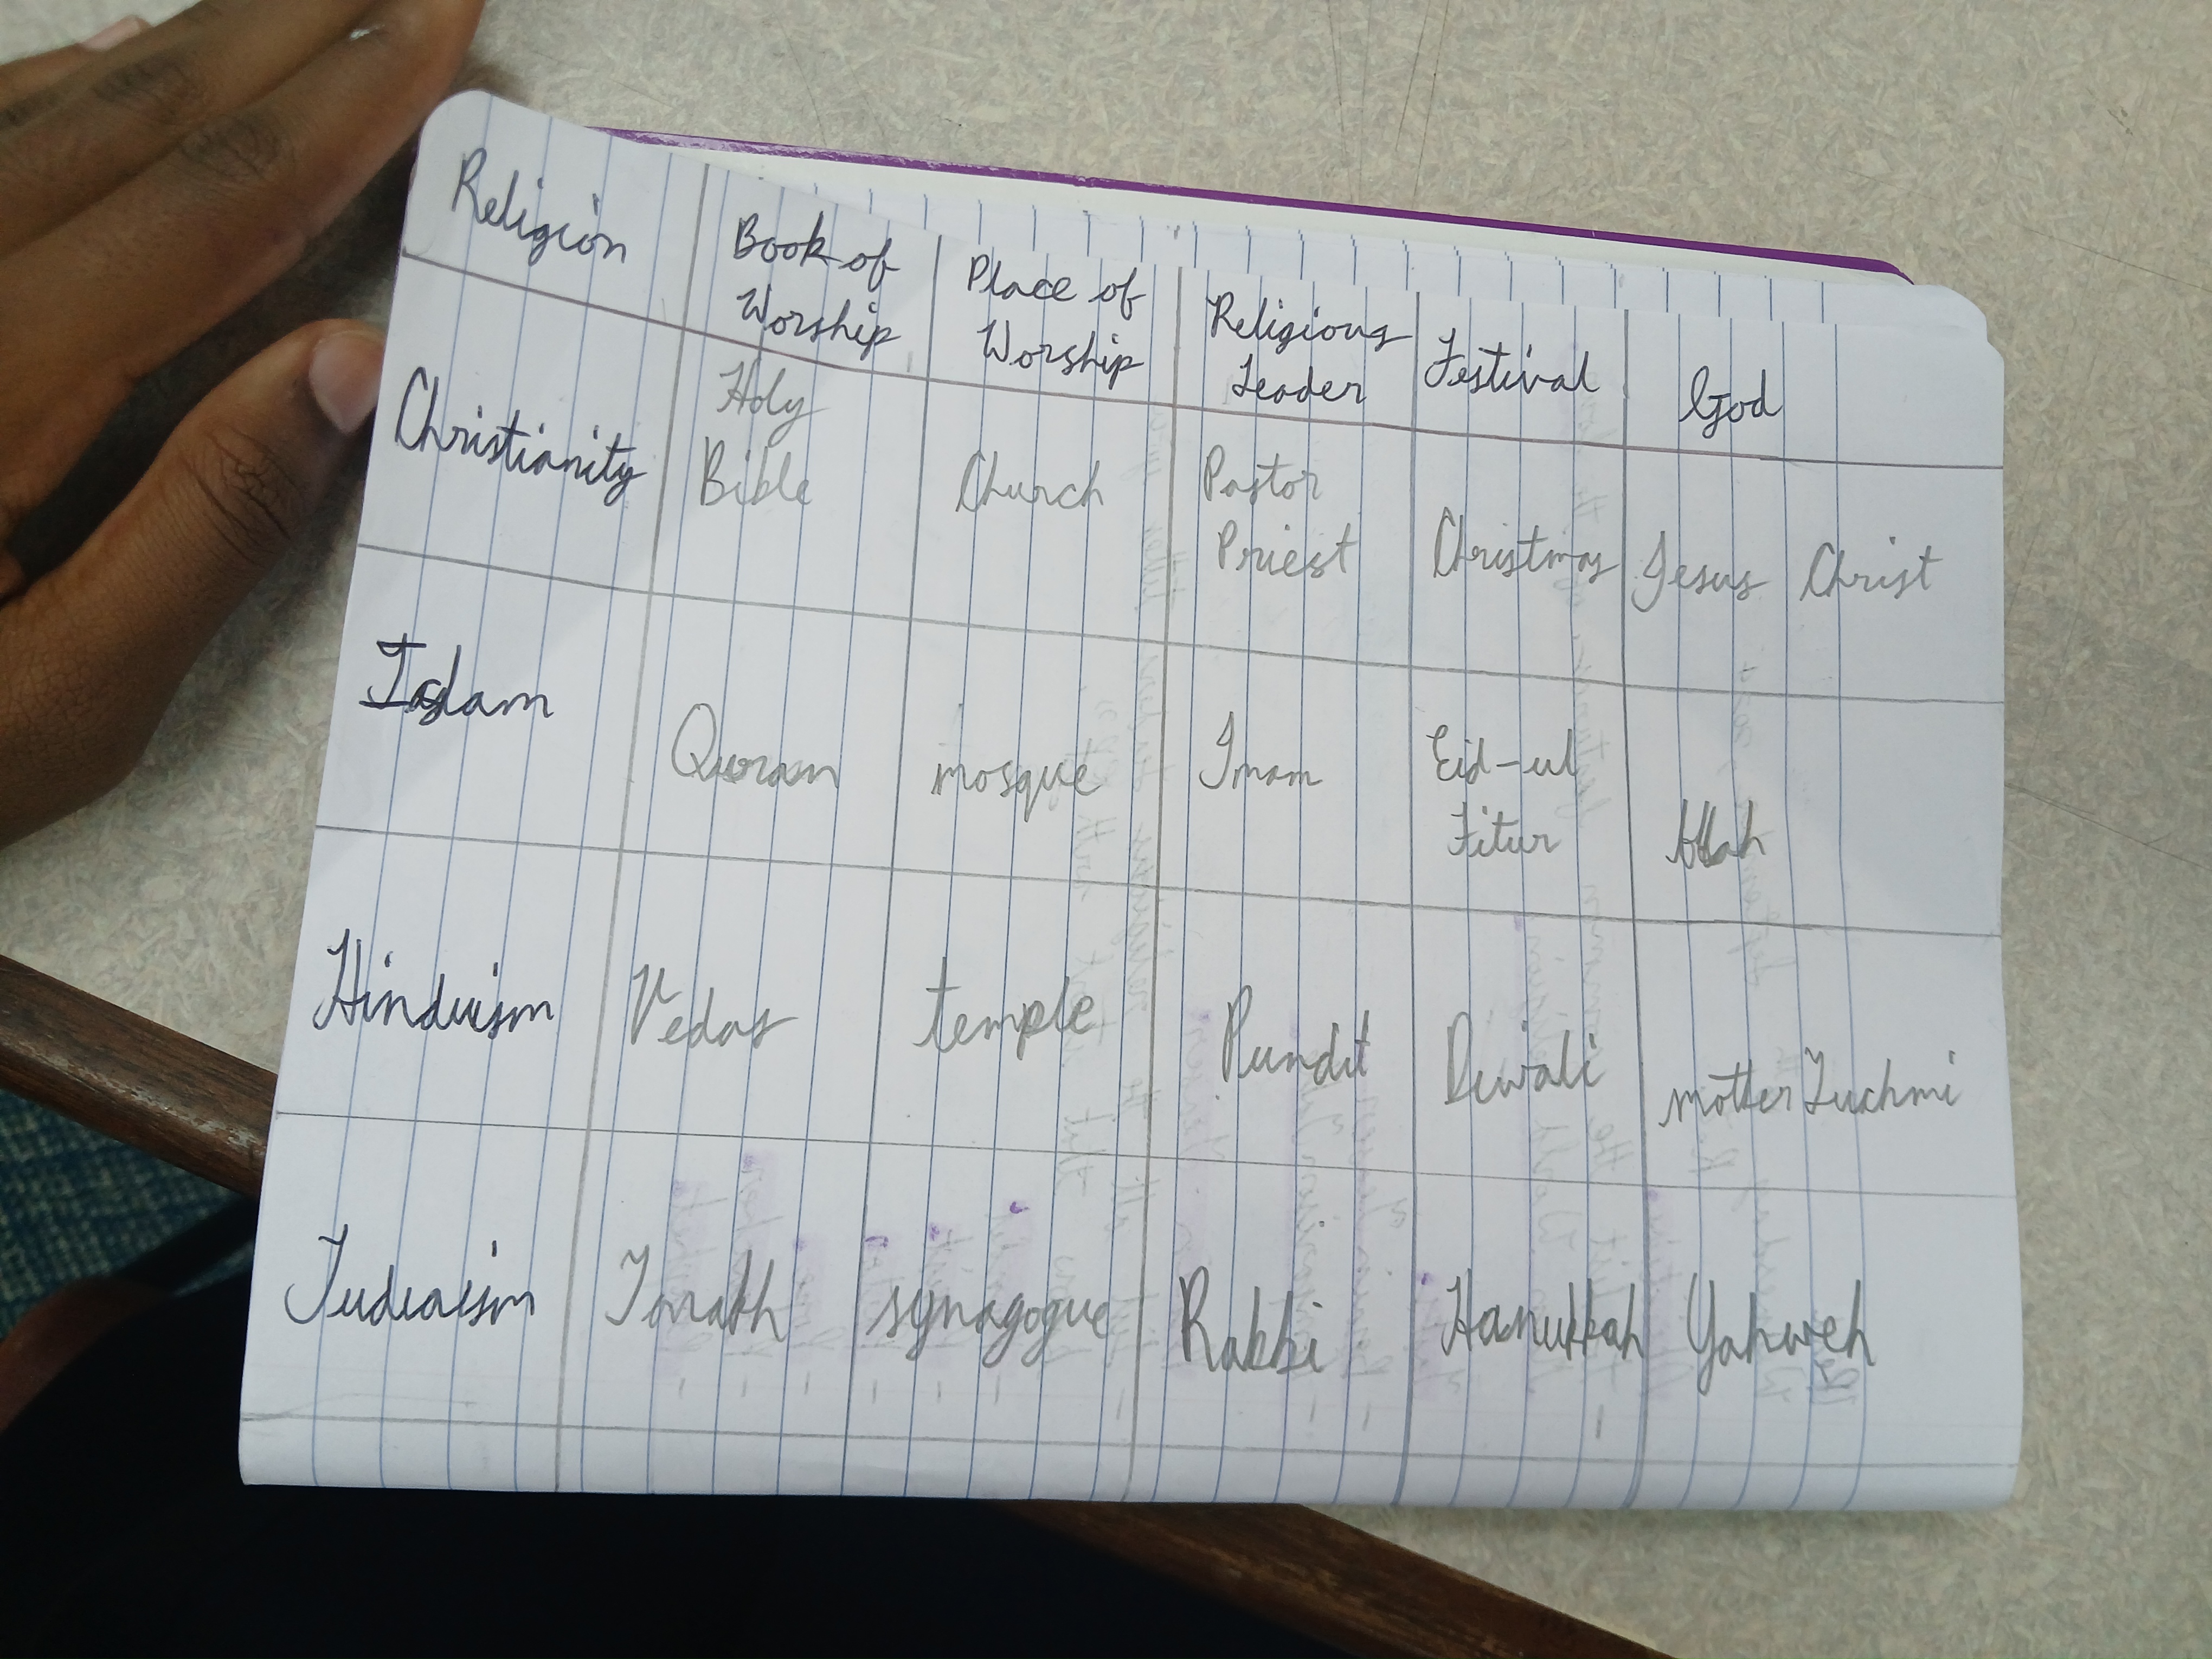 Religion
Book of
Worship
Place of
Worship
Religious
Leader
Festival
God
Christianity
Holy
Bible
Church
Pastor
Priest
Christmas
Jesus Christ
Islam
Quran
mosque
Imam
Eid-ul
Fitur
Allah
Hinduism
Vedas
temple
Pundit
Diwali
mother Luchmi
Judaism
synagogue
Rabbi
Hanukkah
Yahweh